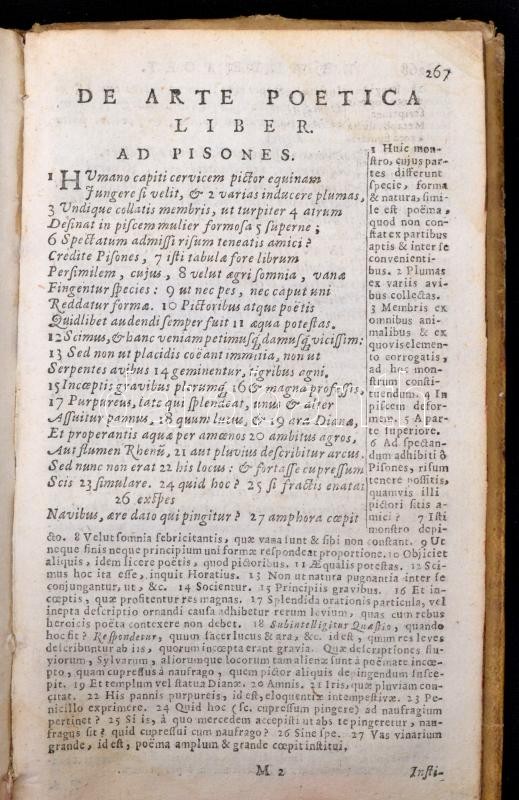 267
DE ARTE POETICA
LIBER.
AD PISONES.
1 HUmano capiti cervicem pictor equinam
Jungere si velit, & 2 varias inducere plumas,
3 Undique collatis membris, ut turpiter 4 atrum
Desinat in piscem mulier formosa 5 superne;
6 Spectatum admissi risum teneatis amici?
Credite Pisones, 7 isti tabulæ fore librum
Persimilem, cujus, 8 velut ægri somnia, vanæ
Fingentur species: 9 ut nec pes, nec caput uni
Reddatur formæ. 10 Pictoribus atque poëtis
Quidlibet audendi semper fuit 11 æqua potestas.
12 Scimus, & hanc veniam petimusq; damusq; vicissim:
13 Sed non ut placidis coëant immitia, non ut
Serpentes avibus 14 geminentur, tigribus agni.
15 Incœptis gravibus plerumq; 16 & magna professis,
17 Purpureus, late qui splendeat, unus & alter
Assuitur pannus, 18 quum lucus, & 19 ara Dianæ,
Et properantis aquæ per amœnos 20 ambitus agros,
Aut flumen Rhenū, 21 aut pluvius describitur arcus.
Sed nunc non erat 22 his locus: & fortasse cupressum
Scis 23 simulare. 24 quid hoc? 25 si fractis enatat
26 exspes
Navibus, ære dato qui pingitur? 27 amphora cœpit
1 Huic mon-
stro, cujus par-
tes differunt
specie, forma
& natura, simi-
le est poëma,
quod non con-
stat ex partibus
aptis & inter se
convenienti-
bus. 2 Plumas
ex variis avi-
bus collectas.
3 Membris ex
omnibus ani-
malibus & ex
quovis elemen-
to corrogatis,
ad hoc mon-
strum consti-
tuendum. 4 In
piscem defor-
mem. 5 A par-
te superiore.
6 Ad spectan-
dum adhibiti ô
Pisones, risum
tenere possitis,
quamvis illi
pictori sitis a-
mici? 7 Isti
monstro depi-
cto. 8 Velut somnia febricitantis, quæ vana sunt & sibi non constant. 9 Ut
neque finis neque principium uni formæ respondeat proportione. 10 Objiciet
aliquis, idem licere poëtis, quod pictoribus. 11 Æqualis potestas. 12 Sci-
mus hoc ita esse, inquit Horatius. 13 Non ut natura pugnantia inter se
conjungantur, ut, &c. 14 Socientur. 15 Principiis gravibus. 16 Et in-
cœptis, quæ profitentur res magnas. 17 Splendida orationis particula, vel
inepta descriptio ornandi causa adhibetur rerum levium, quas cum rebus
heroicis poëta contexere non debet. 18 Subintelligitur Quæstio, quando
hoc fit? Respondetur, quum sacer lucus & ara, &c. id est, quum res leves
describuntur ab iis, quorum incœpta erant gravia. Quæ descriptiones flu-
viorum, Sylvarum, aliorumque locorum tam alienæ sunt à poëmate incœ-
pto, quam cupressus à naufrago, quem pictor aliquis depingendum susce-
pit. 19 Et templum vel statua Dianæ. 20 Amnis. 21 Iris, quæ pluviam con-
citat. 22 His pannis purpureis, id est, eloquentiæ intempestivæ. 23 Pe-
nicillo exprimere. 24 Quid hoc (sc. cupressum pingere) ad naufragium
pertinet? 25 Si is, à quo mercedem accepisti ut abs te pingeretur, nau-
fragus sit? quid cupressui cum naufrago? 26 Sine spe. 27 Vas vinarium
grande, id est, poëma amplum & grande cœpit institui,
M 2
Insti-